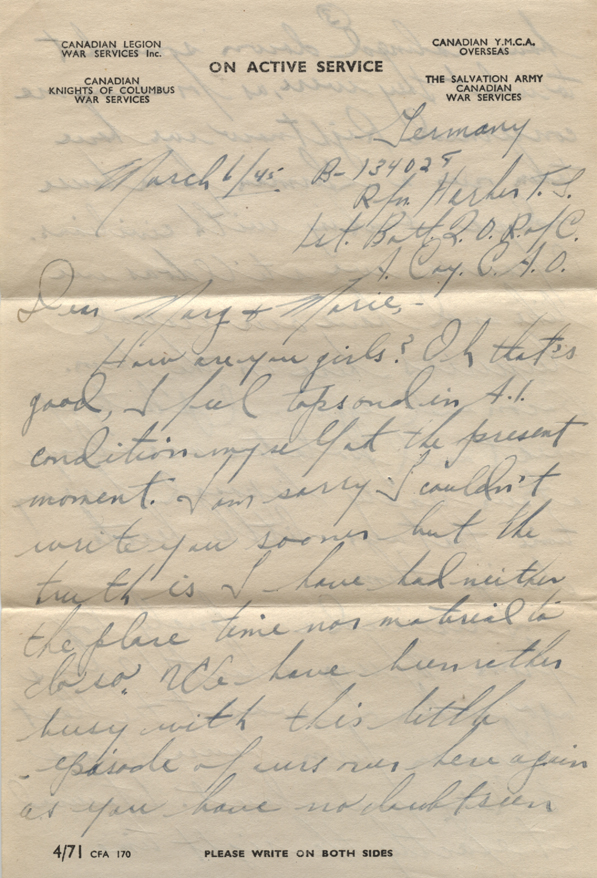 CANADIAN LEGION
WAR SERVICES Inc.
CANADIAN
KNIGHTS OF COLUMBUS
WAR SERVICES
ON ACTIVE SERVICE
CANADIAN Y.M.C.A.
OVERSEAS
THE SALVATION ARMY
CANADIAN
WAR SERVICES
Germany
March 6/45 B-134028
Rfn. T. S.
1st. Batt. Q. O. R. of C.
A. Coy. C. A. O.
Dear Marg & Marie,-
How are you girls? Oh that's
good, I feel tops and in A.1.
condition myself at the present
moment. I am sorry I couldn't
write you sooner but the
truth is I have had neither
the place time nor material to
do so. We have been rather
busy with this little
episode of ours over here again
as you have no doubt seen
4/71 CFA 170 PLEASE WRITE ON BOTH SIDES